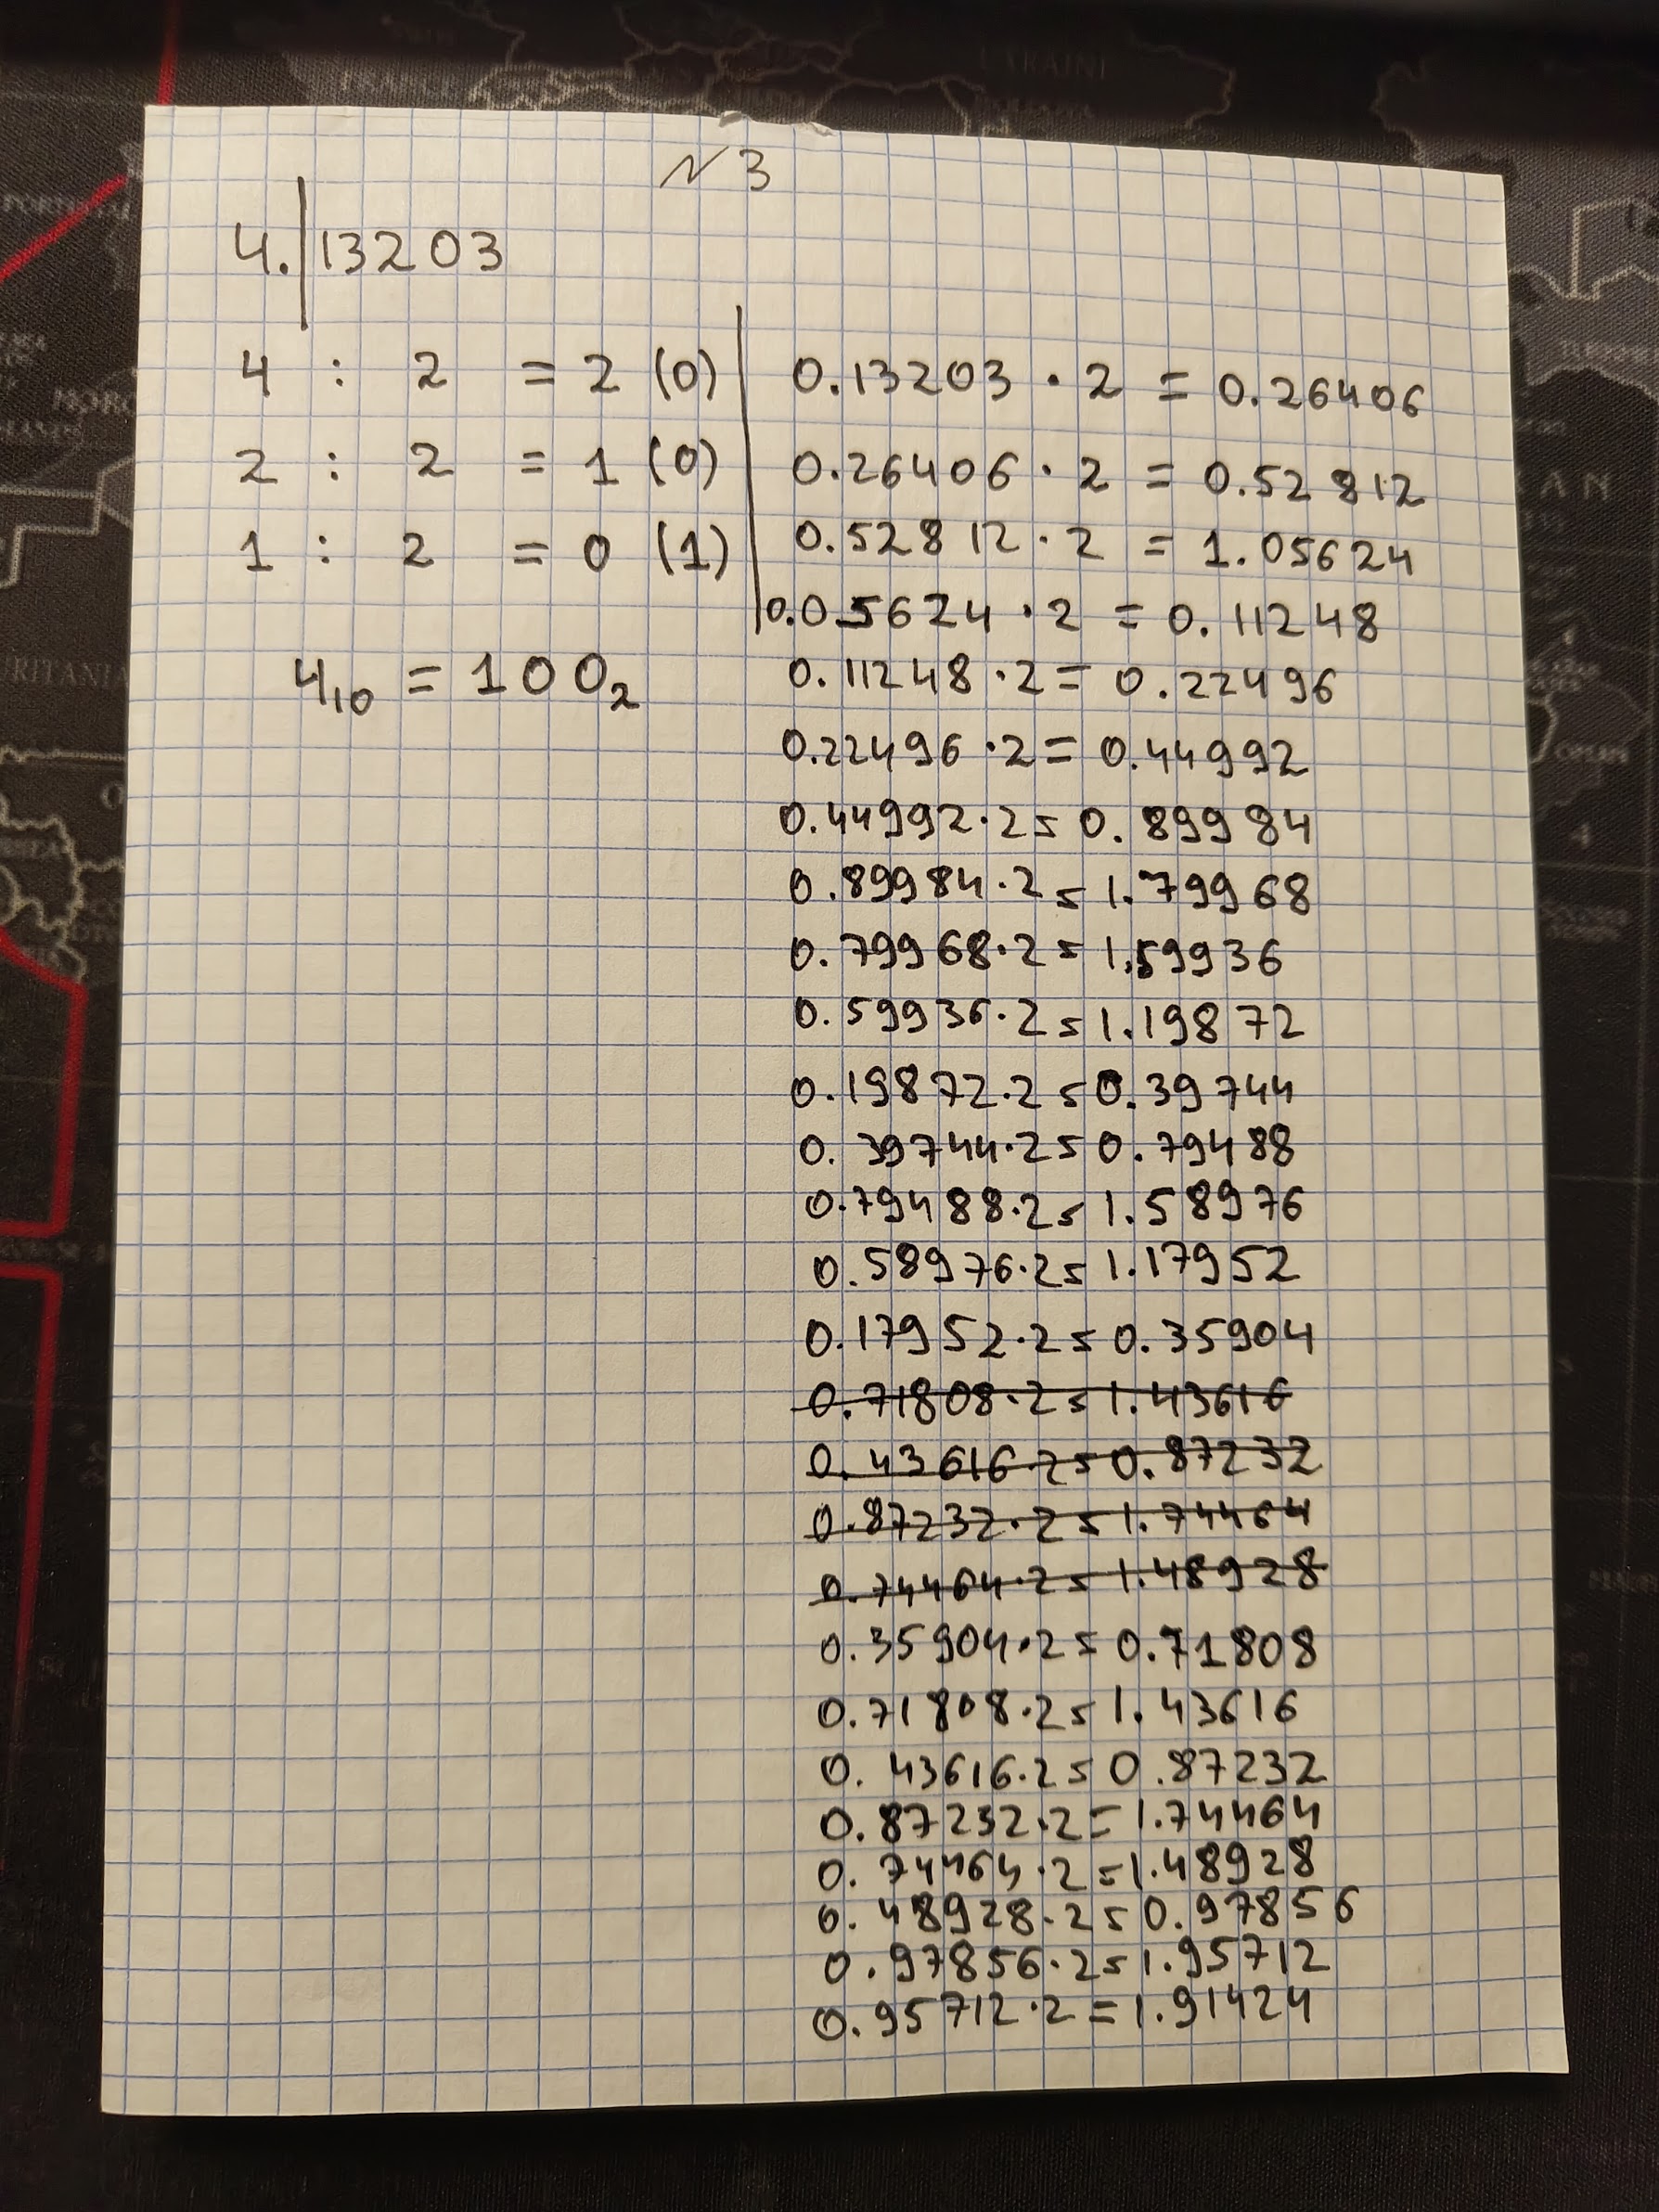 N3
4.|13203
4 : 2 = 2 (0)
2 : 2 = 1 (0)
1 : 2 = 0 (1)
4₁₀ = 100₂
0.13203 · 2 = 0.26406
0.26406 · 2 = 0.52812
0.52812 · 2 = 1.05624
0.05624 · 2 = 0.11248
0.11248 · 2 = 0.22496
0.22496 · 2 = 0.44992
0.44992 · 2 = 0.89984
0.89984 · 2 = 1.79968
0.79968 · 2 = 1.59936
0.59936 · 2 = 1.19872
0.19872 · 2 = 0.39744
0.39744 · 2 = 0.79488
0.79488 · 2 = 1.58976
0.58976 · 2 = 1.17952
0.17952 · 2 = 0.35904
0.71808 · 2 = 1.43616
0.43616 · 2 = 0.87232
0.87232 · 2 = 1.74464
0.74464 · 2 = 1.48928
0.35904 · 2 = 0.71808
0.71808 · 2 = 1.43616
0.43616 · 2 = 0.87232
0.87232 · 2 = 1.74464
0.74464 · 2 = 1.48928
0.48928 · 2 = 0.97856
0.97856 · 2 = 1.95712
0.95712 · 2 = 1.91424